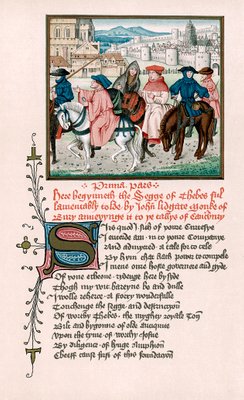 Prima Pars
Here begynneth the Segge of Thebes ful
lamentably tolde by John lidgate monke of
Bury annexynge it to ye tallys of Caũtbury
Sirs quod I sith of youre curtesye
I entrede am in to youre Companye
And admytted a tale for to tele
By hym that hath power to compele
I mene oure hoste governere and gyde
Of youe echone ridenge here by side
Thogh my wit bareyne be and dulle
I wolle reherce a story wonderfulle
Touchenge the segge and destruccyon
Of worthy Thebes the myghty royale Toũ
Bilt and bygonne of olde antiquite
Upon the tyme of worthy Josue
By diligence of kinge Amphion
Cheeff cause first of this foundacyon